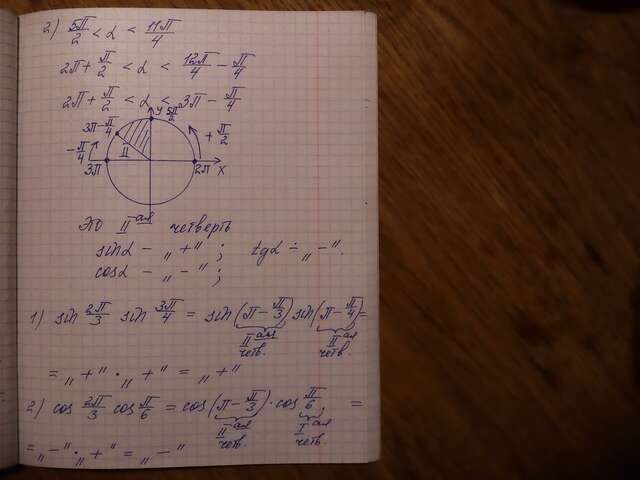 2) 5π/2 < α < 11π/4
2π + π/2 < α < 12π/4 − π/4
2π + π/2 < α < 3π − π/4
y 5π/2
3π − π/4 + π/2
− π/4 II
3π 2π x
Это II ая четверть
sin α − „+"; tg α = „−".
cos α − „−";
1) sin 2π/3 sin 3π/4 = sin(π − π/3) sin(π − π/4) =
II ая четв. II ая четв.
= „+" · „+" = „+"
2) cos 2π/3 cos π/6 = cos(π − π/3) · cos π/6; =
II ая четв. I ая четв.
= „−" · „+" = „−"